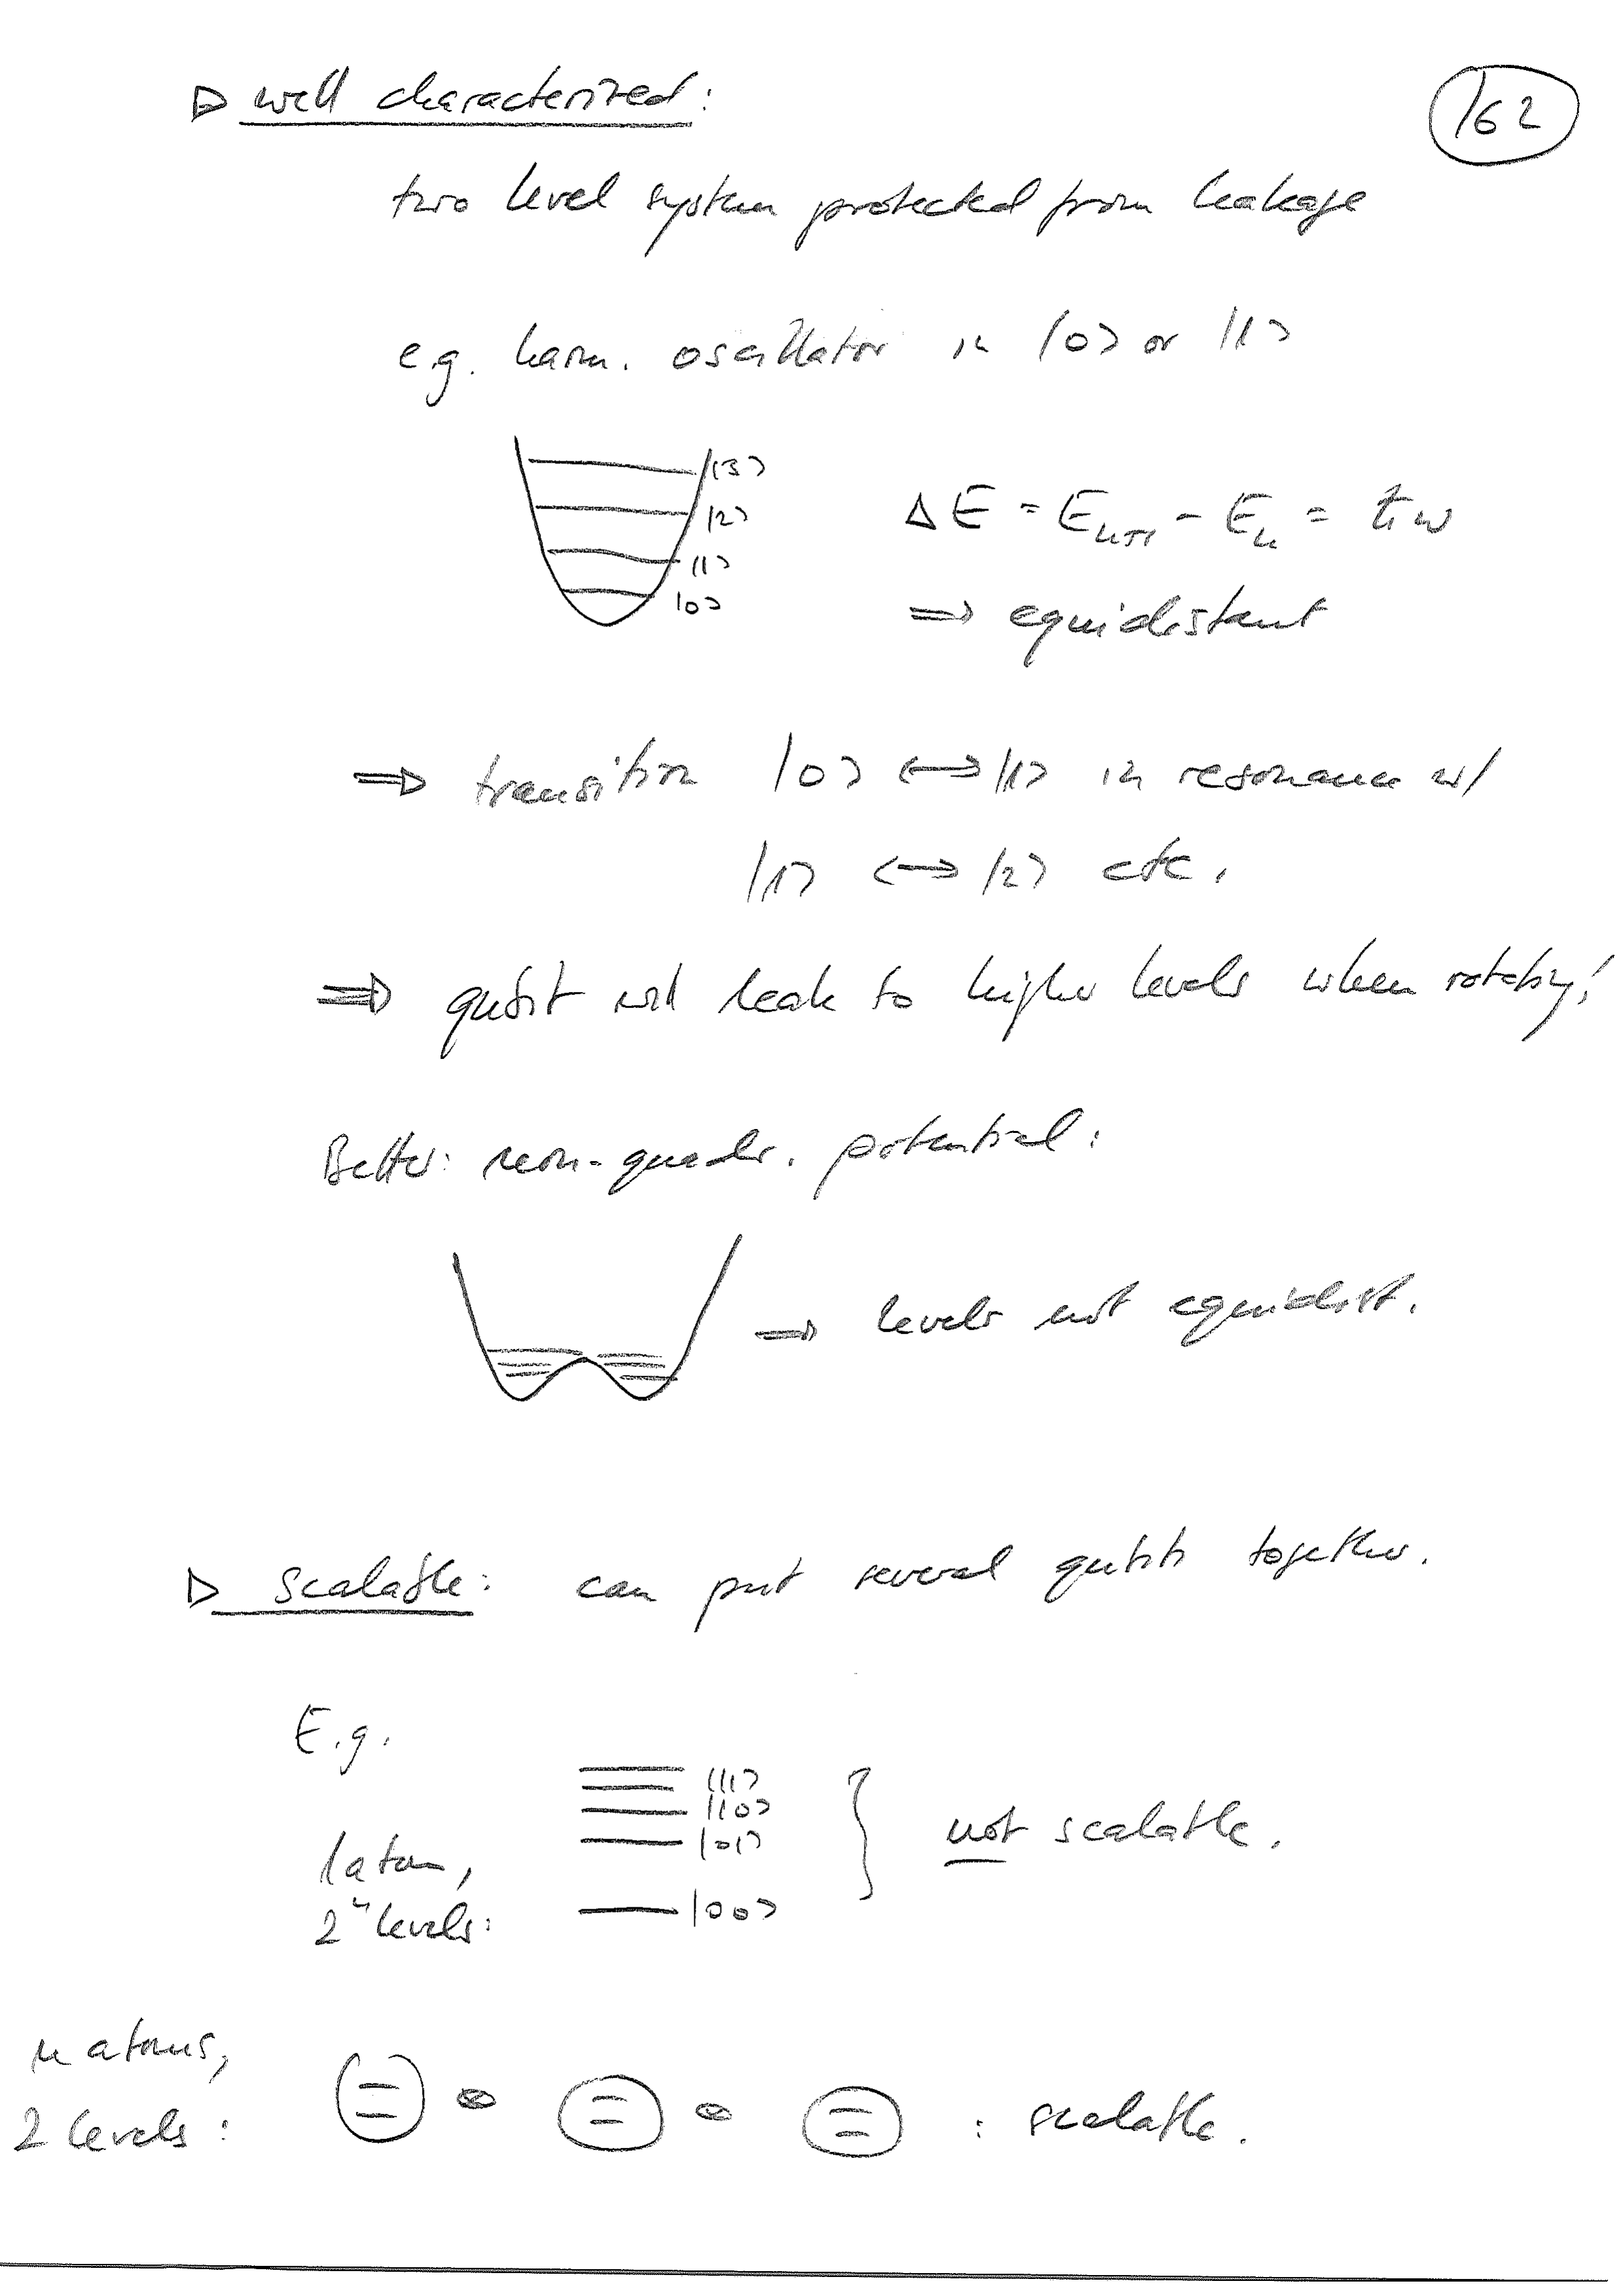 ▷ well characterized:
162
two level system protected from leakage
e.g. harm. oscillator in |0⟩ or |1⟩
|3⟩
|2⟩
|1⟩
|0⟩
ΔE = Eₙ₊₁ - Eₙ = ħω
⇒ equidistant
⇒ transition |0⟩ ↔ |1⟩ in resonance w/
|1⟩ ↔ |2⟩ etc.
⇒ qubit will leak to higher levels when rotating!
Better: non-quadr. potential:
→ levels not equidist.
▷ scalable: can put several qubits together.
E.g.
1 atom,
2ⁿ levels:
|11⟩
|10⟩
|01⟩
|00⟩
} not scalable.
n atoms,
2 levels:
⊗ ⊗ : scalable.